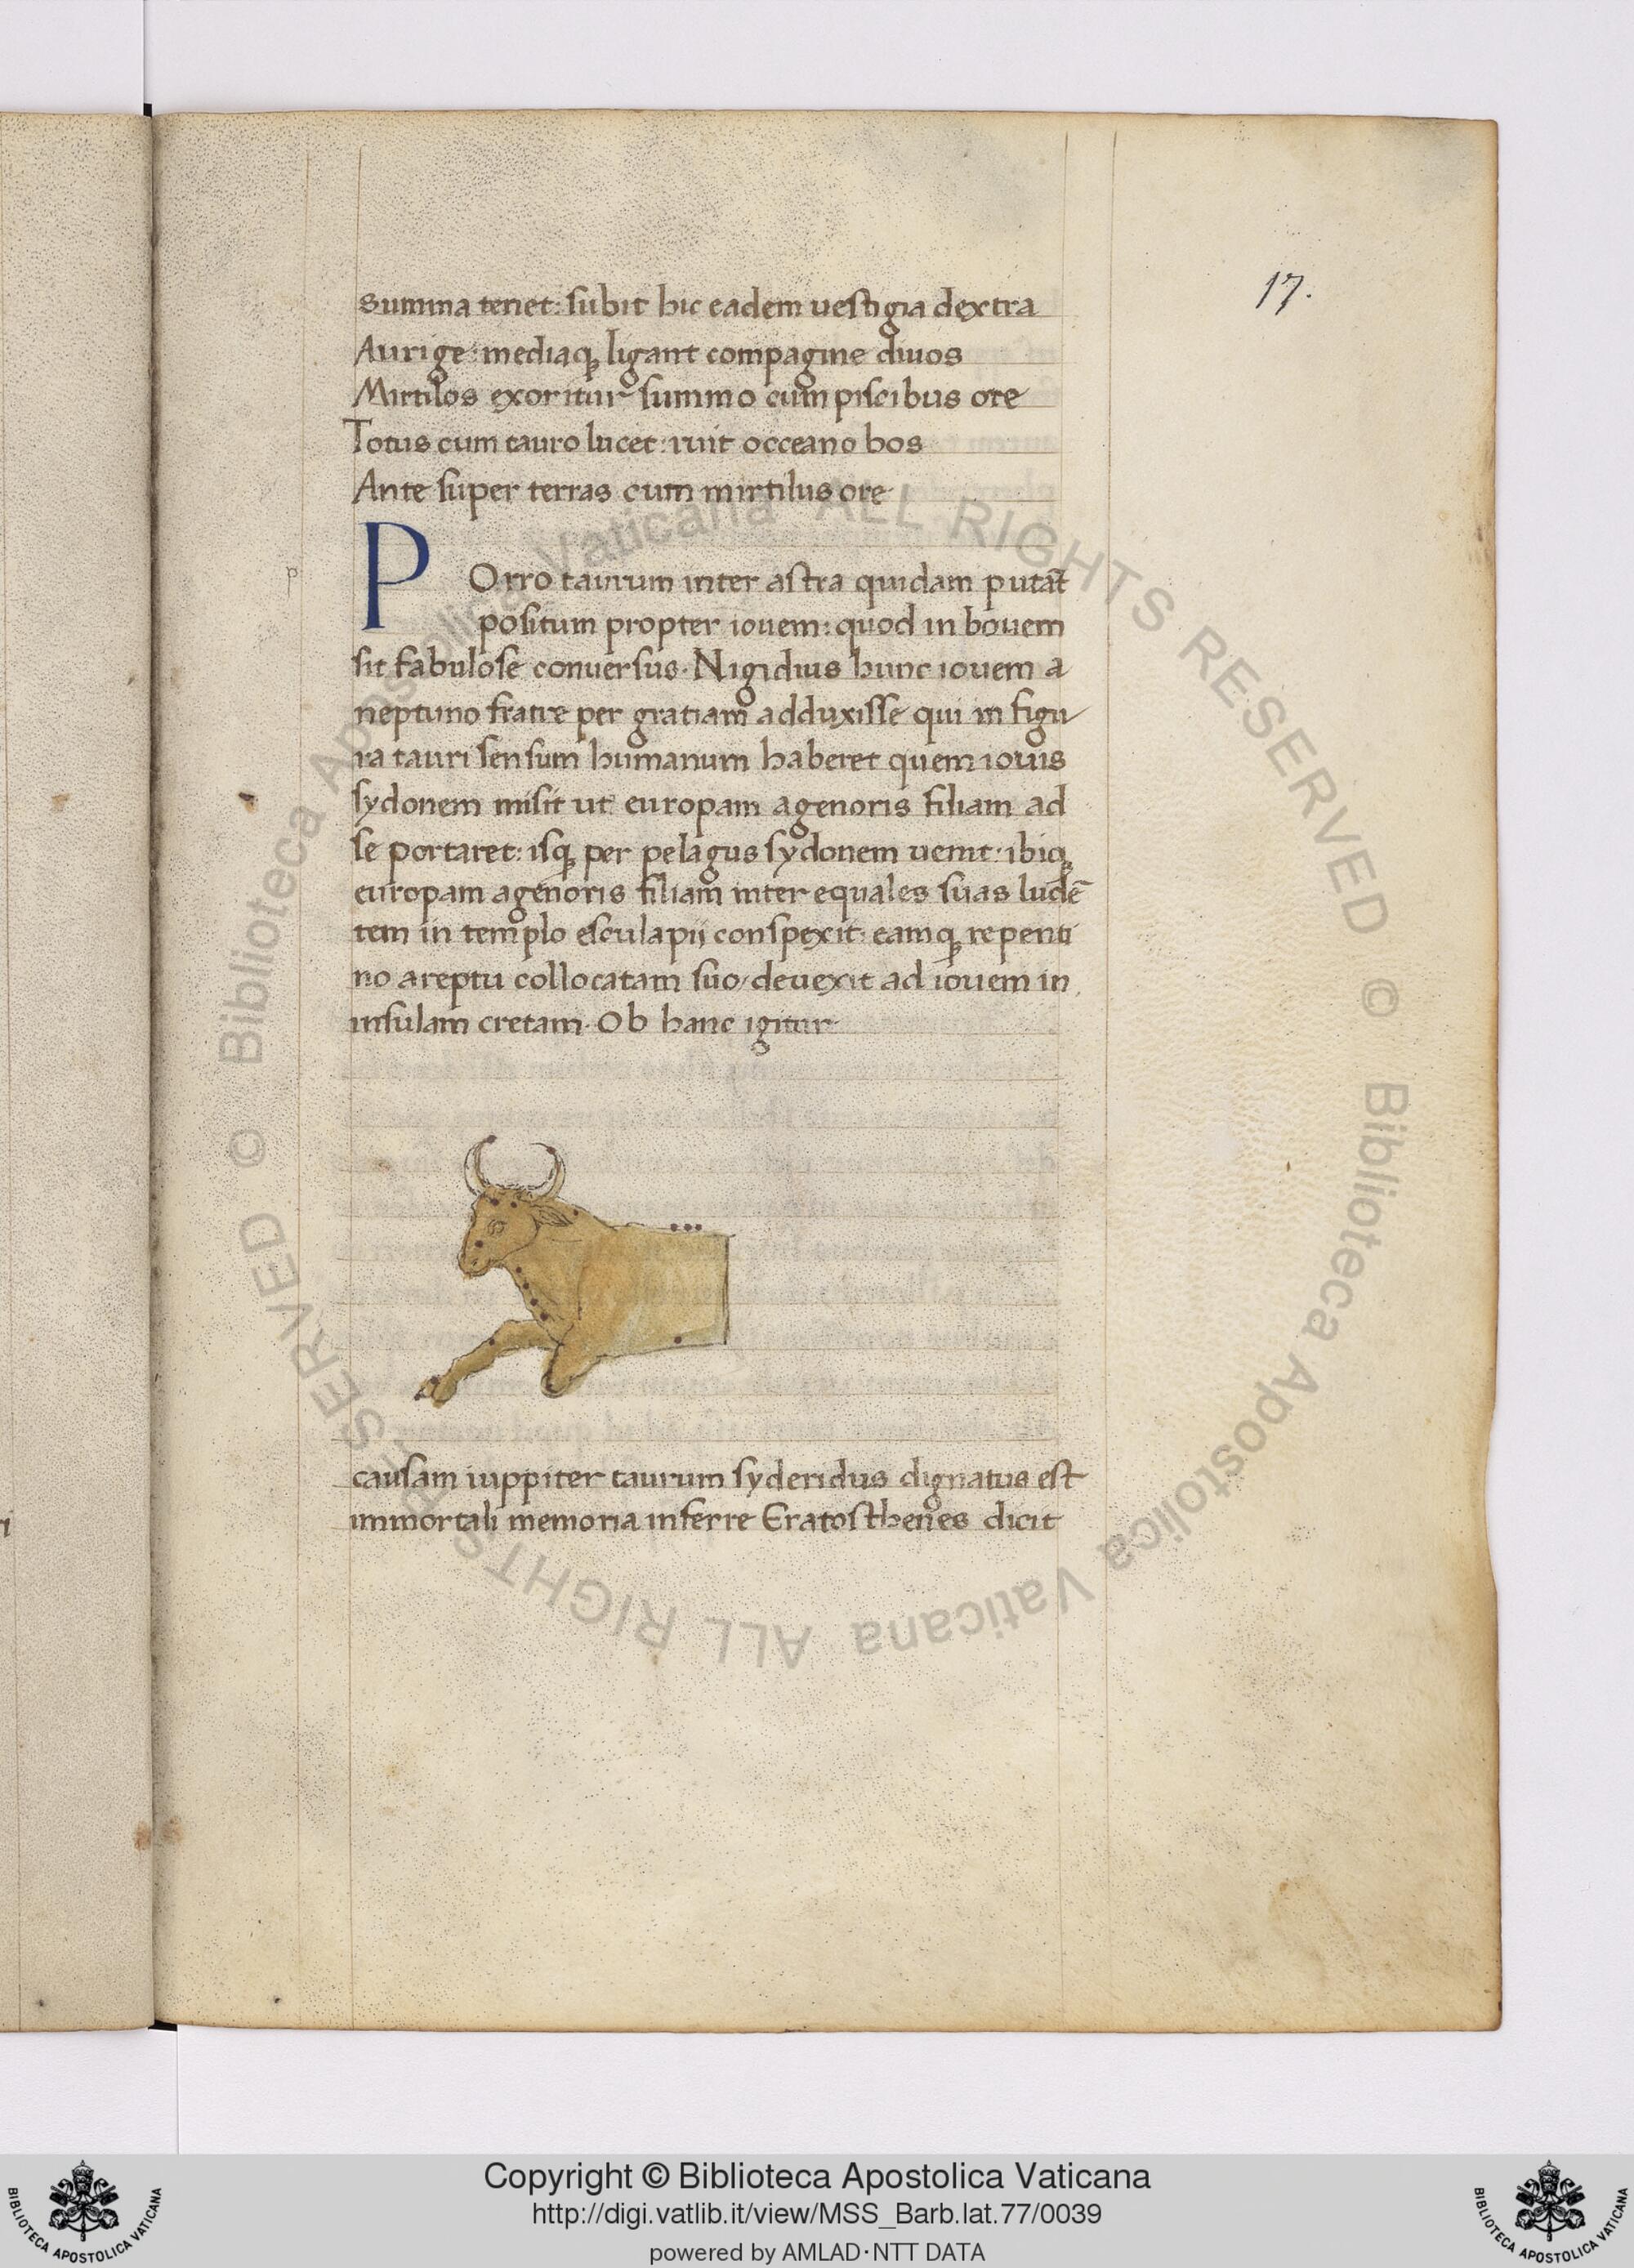 17.
summa tenet: subit hic eadem uestigia dextra
Aurige: mediaqꝫ ligant compagine diuos
Mirtilos exoritur summo cum piscibus ore
Totus cum tauro lucet: ruit occeano bos
Ante super terras cum mirtilus ore
p
POrro taurum inter astra quidam putāt
positum propter iouem: quod in bouem
sit fabulose conuersus. Nigidius hunc iouem a
neptuno fratre per gratiam adduxisse qui in figu
ra tauri sensum humanum haberet quem iouis
sydonem misit ut europam agenoris filiam ad
se portaret: isqꝫ per pelagus sydonem uenit: ibiqꝫ
europam agenoris filiam inter equales suas ludē
tem in templo esculapij conspexit: eamqꝫ repenti
no areptu collocatam suo/ deuexit ad iouem in
insulam cretam. Ob hanc igitur
causam iuppiter taurum syderidus dignatus est
immortali memoria inferre Eratosthenes dicit
© Biblioteca Apostolica Vaticana ALL RIGHTS RESERVED
© Biblioteca Apostolica Vaticana ALL RIGHTS RESERVED
Copyright © Biblioteca Apostolica Vaticana
http://digi.vatlib.it/view/MSS_Barb.lat.77/0039
powered by AMLAD·NTT DATA
BIBLIOTECA APOSTOLICA VATICANA
BIBLIOTECA APOSTOLICA VATICANA